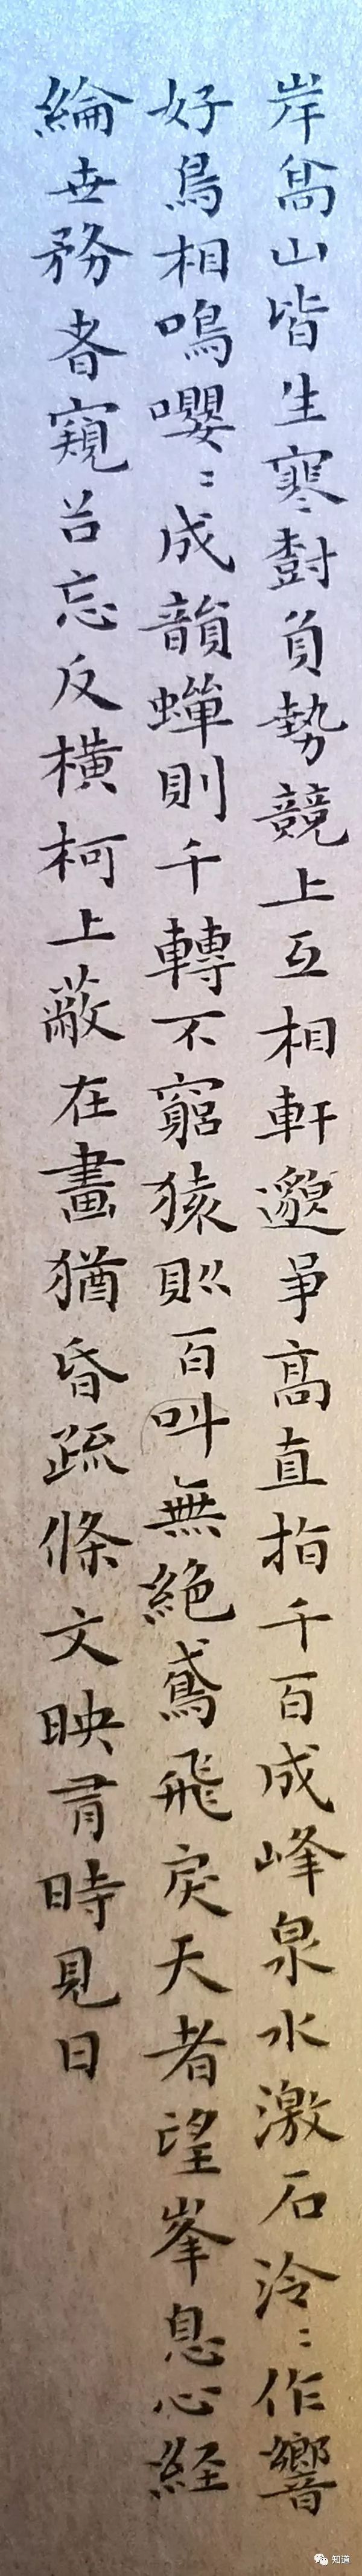 岸髙山皆生寒𡬾負勢競上互相軒邈爭髙直指千百成峰泉水激石泠〻作響
好鳥相鳴嚶〻成韻蟬則千轉不窮猿則百叫無絕鳶飛戾天者望峯息心経
綸世務者窺谷忘反橫柯上蔽在晝猶昏疏條交映有時見日
知道